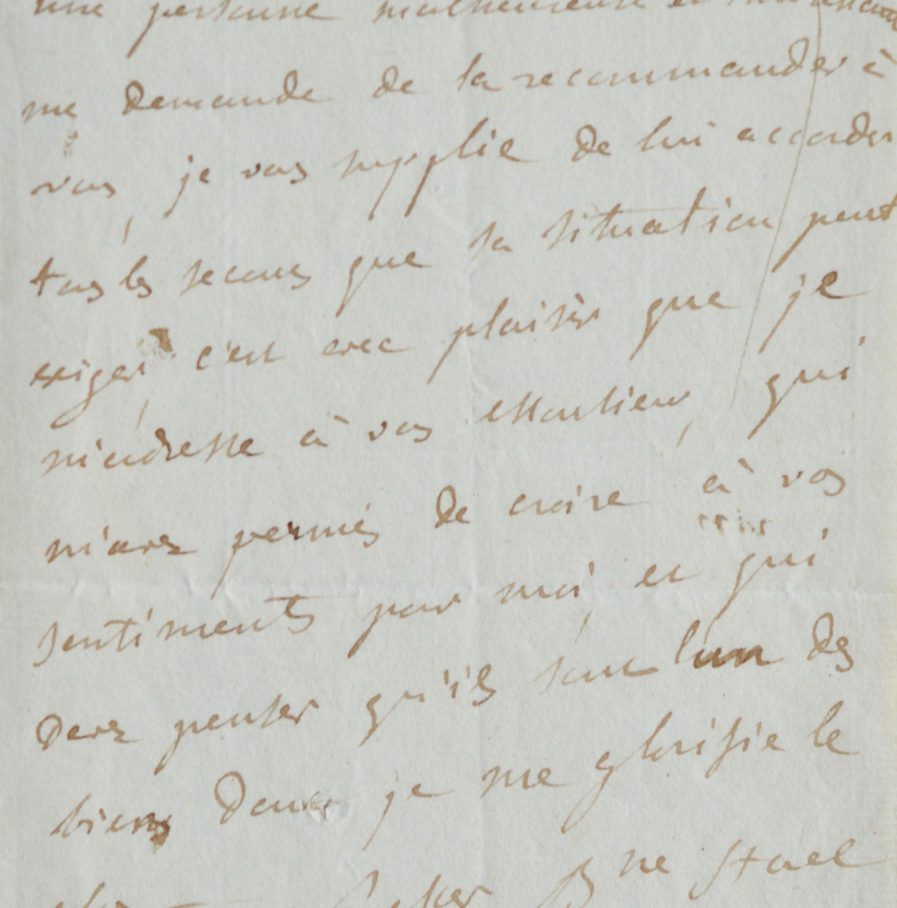 une personne malheureuse et
me demande de la recommander à
vous, je vous supplie de lui accorder
tous les secours que sa situation peut
exiger, c'est avec plaisir que je
m'adresse à vous monsieur, qui
m'avez permis de croire à vos
sentiments pour moi, et qui
devez penser qu'ils sont l'un des
biens dont je me glorifie le
plus — Necker Bne Stael